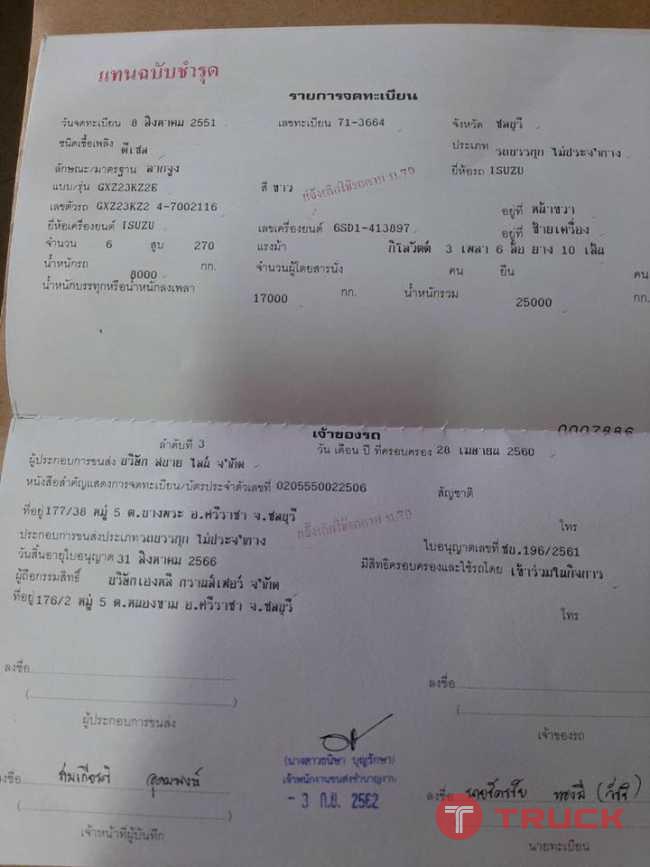 แทนฉบับชำรุด
รายการจดทะเบียน
วันจดทะเบียน 8 สิงหาคม 2551 เลขทะเบียน 71-3664 จังหวัด ชลบุรี
ชนิดเชื้อเพลิง ดีเซล ประเภท รถบรรทุก ไม่ประจำทาง
ลักษณะ/มาตรฐาน ลากจูง ยี่ห้อรถ ISUZU
แบบ/รุ่น GXZ23KZ2E สี ขาว
เลขตัวรถ GXZ23KZ2 4-7002116 อยู่ที่ หน้าขวา
ยี่ห้อเครื่องยนต์ ISUZU เลขเครื่องยนต์ 6SD1-413897 อยู่ที่ ซ้ายเครื่อง
จำนวน 6 สูบ 270 แรงม้า กิโลวัตต์ 3 เพลา 6 ล้อ ยาง 10 เส้น
น้ำหนักรถ 8000 กก. จำนวนผู้โดยสารนั่ง คน ยืน คน
น้ำหนักบรรทุกหรือน้ำหนักลงเพลา 17000 กก. น้ำหนักรวม 25000 กก.
เจ้าของรถ 0007886
ลำดับที่ 3 วัน เดือน ปี ที่ครอบครอง 28 เมษายน 2560
ผู้ประกอบการขนส่ง บริษัท สบาย ไลน์ จำกัด
หนังสือสำคัญแสดงการจดทะเบียน/บัตรประจำตัวเลขที่ 0205550022506 สัญชาติ
ที่อยู่ 177/38 หมู่ 5 ต.บางพระ อ.ศรีราชา จ.ชลบุรี โทร
ประกอบการขนส่งประเภท รถบรรทุก ไม่ประจำทาง ใบอนุญาตเลขที่ ชบ.196/2561
วันสิ้นอายุใบอนุญาต 31 สิงหาคม 2566 มีสิทธิครอบครองและใช้รถโดย เข้าร่วมในกิจการ
ผู้ถือกรรมสิทธิ์ บริษัทเองตลี ทรานสเฟอร์ จำกัด
ที่อยู่ 176/2 หมู่ 5 ต.หนองขาม อ.ศรีราชา จ.ชลบุรี โทร
ลงชื่อ ลงชื่อ
ผู้ประกอบการขนส่ง เจ้าของรถ
(นางสาวธนิษา บุญรักษา)
เจ้าพนักงานขนส่งชำนาญงาน
- 3 ก.ย. 2562
ลงชื่อ ลงชื่อ
เจ้าหน้าที่ผู้บันทึก นายทะเบียน
TRUCK